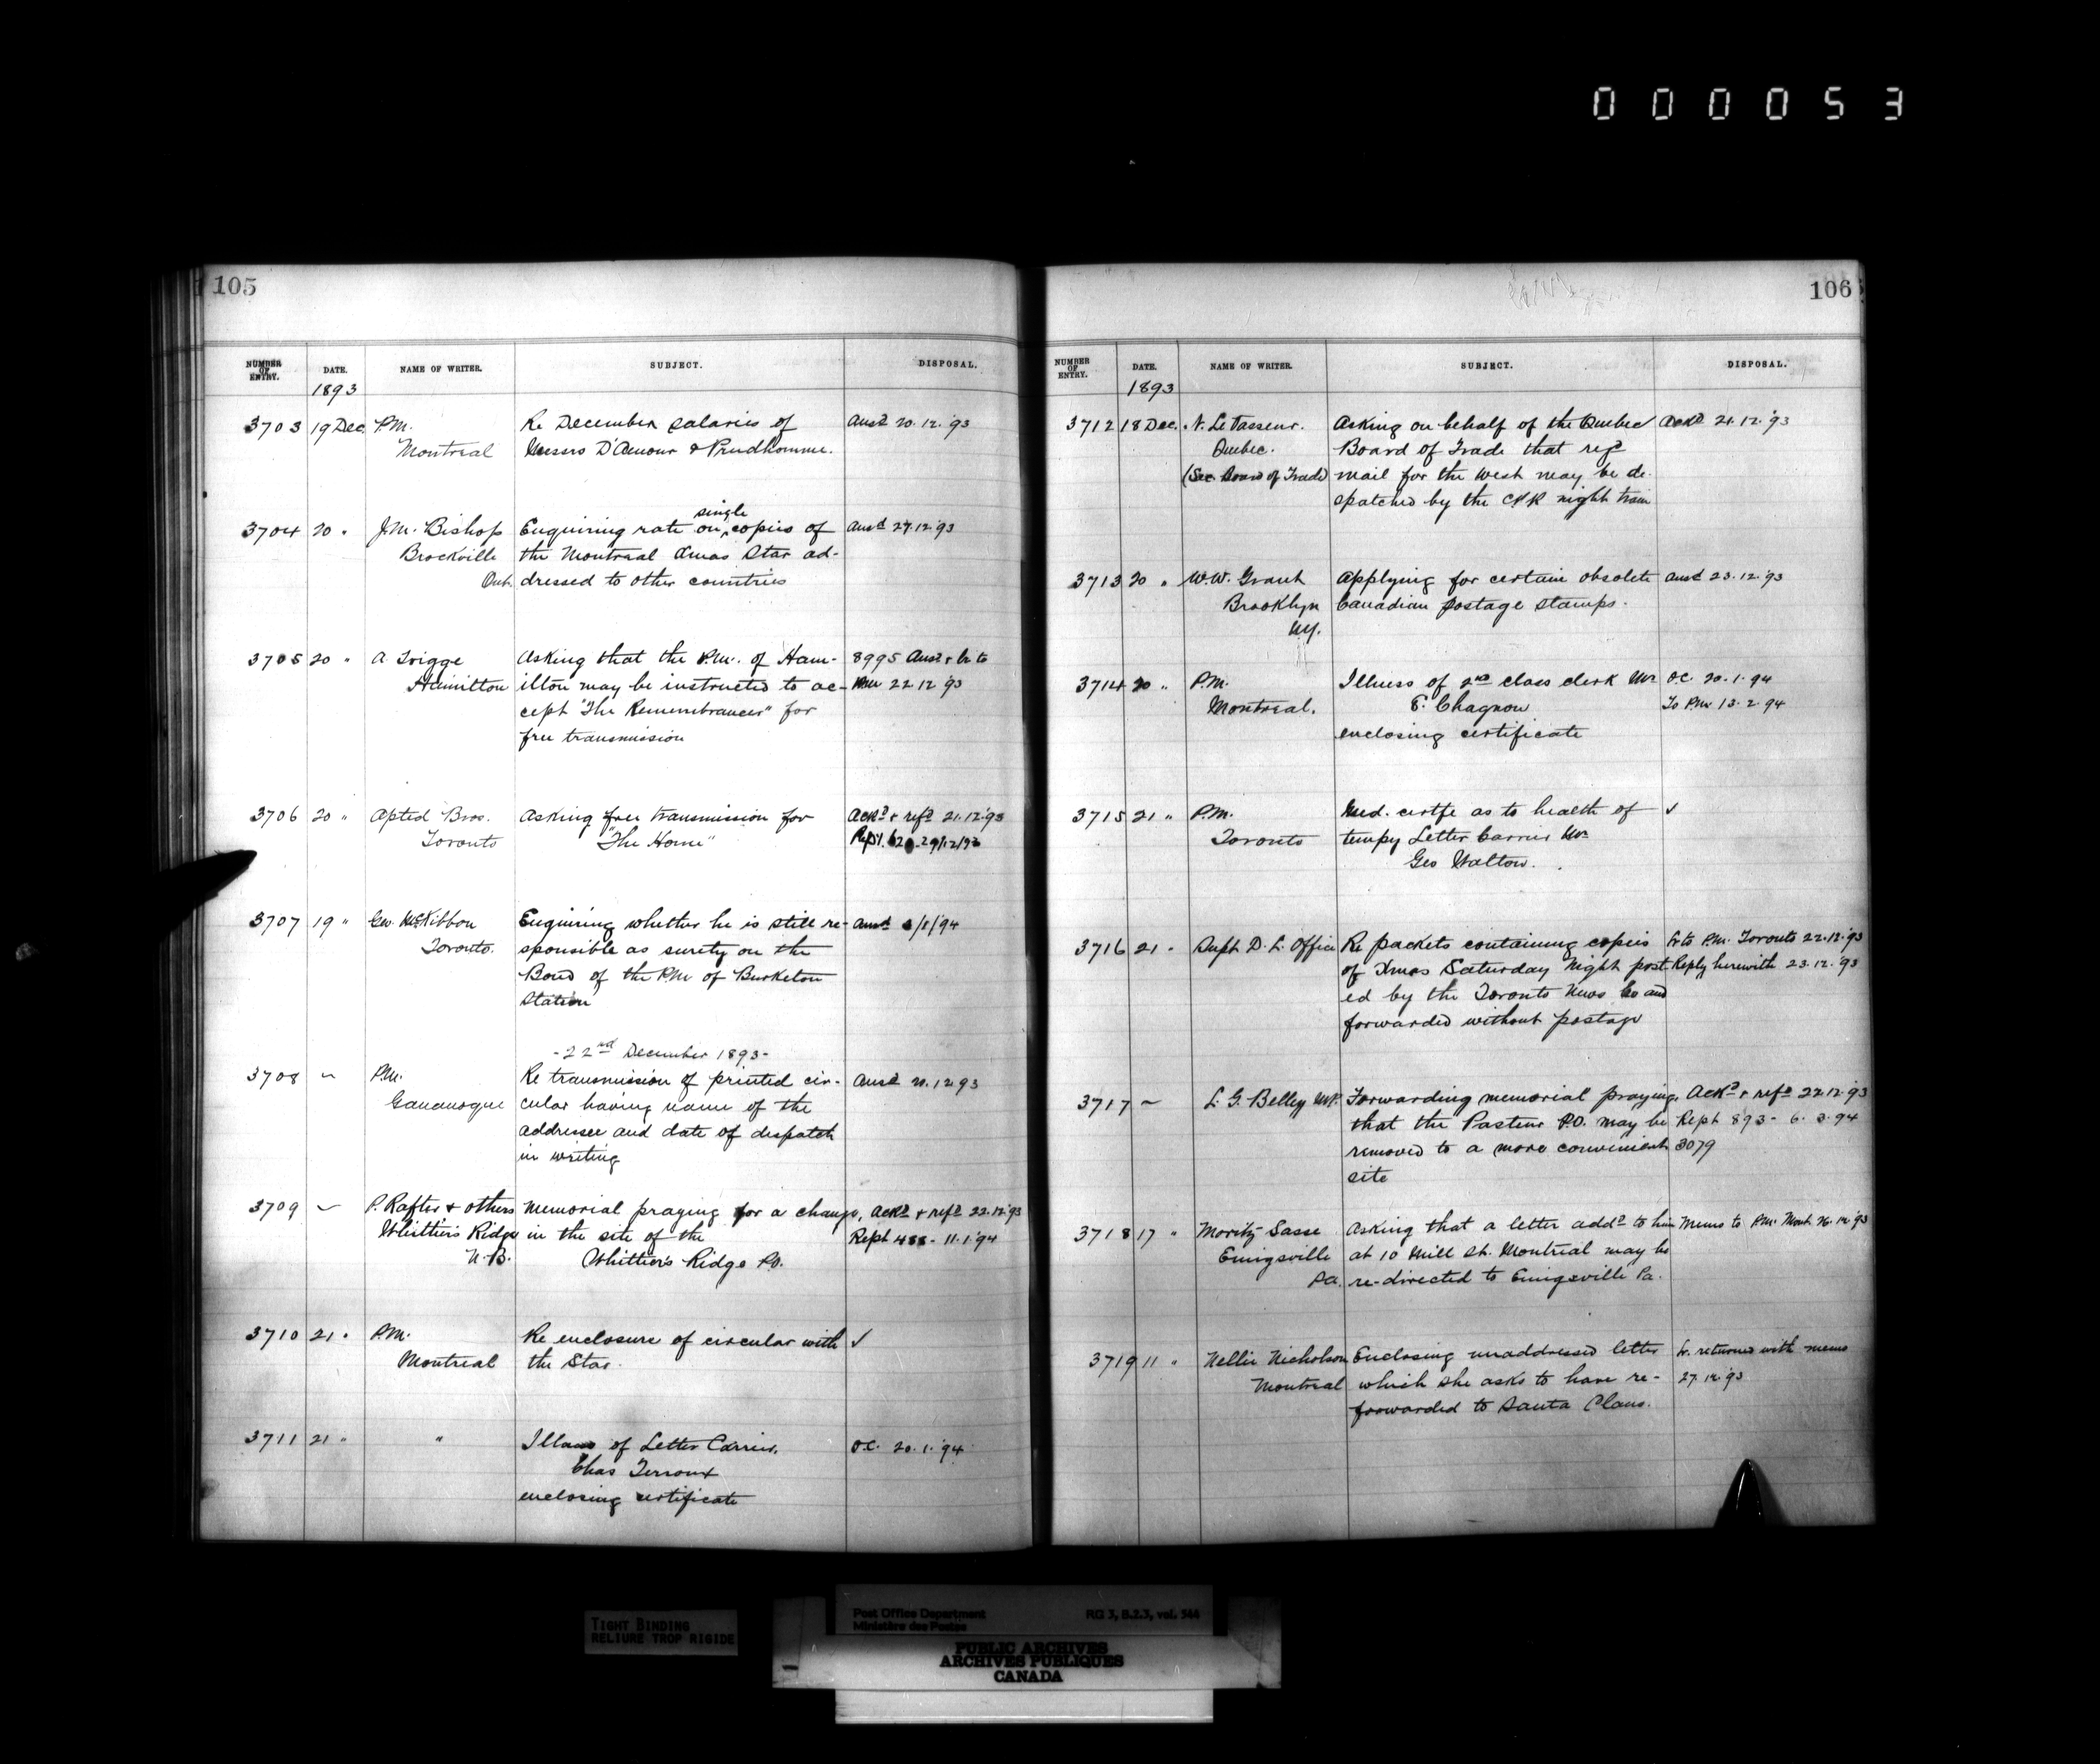 000053
105
NUMBER OF ENTRY. DATE. NAME OF WRITER. SUBJECT. DISPOSAL.
1893
3703 19 Dec. P.M. Re December salaries of Ansd 20.12.'93
Montreal Messrs D'Amour & Prudhomme.
single
3704 20 " J.M. Bishop Enquiring rate on ^ copies of Ansd 27.12.'93
Brockville the Montreal Xmas Star ad-
Ont. dressed to other countries
3705 20 " A. Trigge Asking that the P.M. of Ham- 8995 Ansd & lr to
Hamilton ilton may be instructed to ac- PM 22 12 '93
cept "The Remembrancer" for
free transmission
3706 20 " Apted Bros. Asking free transmission for Ackd & refd 21.12.'93
Toronto "The Home" 29/12/93
3707 19 " Geo. McKibbon Enquiring whether he is still re- Ansd /1/'94
Toronto. sponsible as surety on the
Bond of the PM of Burketon
Station
- 22nd December 1893 -
3708 ~ P.M. Re transmission of printed cir- Ansd 12 93
Gananoque cular having name of the
addressee and date of despatch
in writing
3709 ~ P. Rafter & others Memorial praying for a change, Ackd & refd 22.12.'93
Whittier's Ridge in the site of the Rept - 11.1.'94
N.B. Whittier's Ridge P.O.
3710 21 " P.M. Re enclosure of circular with ✓
Montreal the Star.
3711 21 " " Illness of Letter Carrier, O.C. 20.1.'94
Chas Terroux
enclosing certificate
106
NUMBER OF ENTRY. DATE. NAME OF WRITER. SUBJECT. DISPOSAL.
1893
3712 18 Dec. N. LeVasseur. Asking on behalf of the Quebec Ackd 21.12.'93
Quebec. Board of Trade that regd
(Sec. Board of Trade) mail for the West may be de-
spatched by the CPR night train
3713 20 " W.W. Grant Applying for certain obsolete Ansd 23.12.'93
Brooklyn Canadian postage stamps.
N.Y.
3714 20 " P.M. Illness of 2nd class clerk Mr O.C. 20.1.94
Montreal. E. Chagnon To P.M. 13.2.94
enclosing certificate
3715 21 " P.M. Med. certfe as to health of ✓
Toronto tempy Letter Carrier Mr
Geo Walton.
3716 21 " Supt D. L. Office Re packets containing copies Lr to P.M. Toronto 22.12.'93
of Xmas Saturday Night post- Reply herewith 23.12.'93
ed by the Toronto News Co and
forwarded without postage
3717 ~ L. G. Belley MP. Forwarding memorial praying, Ackd & refd 22.12.'93
that the Pasteur P.O. may be Rept 893 - 6.3.94
removed to a more convenient 3079
site
3718 17 " Moritz Sasse Asking that a letter addd to him Memo to P.M. Mont. 26.12.'93
Emigsville at 10 Mill St. Montreal may be
Pa. re-directed to Emigsville Pa.
3719 11 " Nellie Nicholson Enclosing unaddressed letter Lr. returned with memo
Montreal which she asks to have re- 27.12.'93
forwarded to Santa Claus.
TIGHT BINDING
RELIURE TROP RIGIDE
Post Office Department RG 3, B.2.3, vol. 544
Ministère des Postes
PUBLIC ARCHIVES
ARCHIVES PUBLIQUES
CANADA